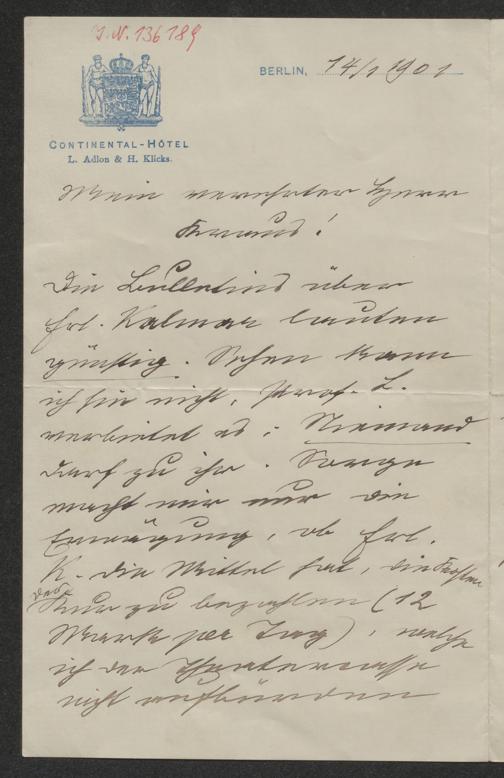 I.N. 136189
BERLIN, 14/1 1901
CONTINENTAL-HÔTEL
L. Adlon & H. Klicks.
Mein verehrter Herr
Kraus!
Die Bulletins über
Frl. Kalmar lauten
günstig. Sehen kann
ich sie nicht, Prof. L.
verbietet es; Niemand
darf zu ihr. Sorge
macht mir nur die
Erwägung, ob Frl.
K. die Mittel hat, die Kosten
der
Kur zu bezahlen (12
Mark per Tag), welche
ich der Theatercasse
nicht aufbürden